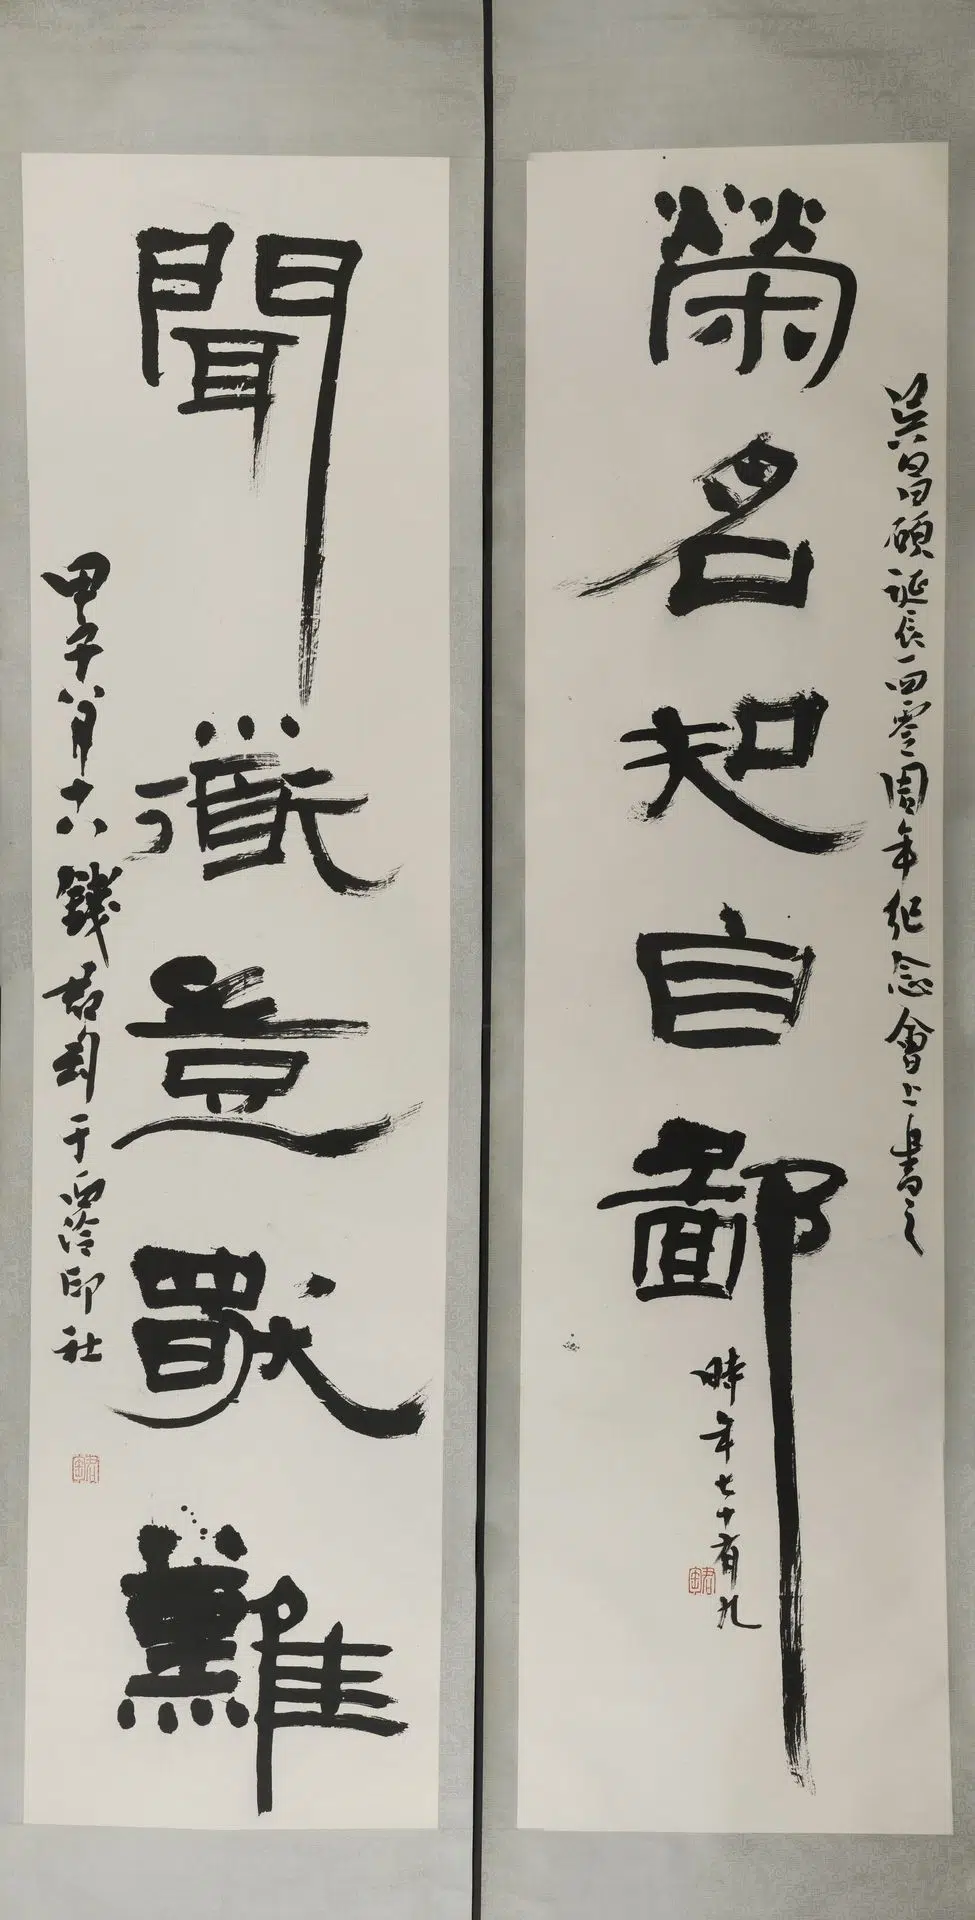 吳昌碩誕辰一四零周年紀念會上書之
榮名知自鄙
時年七十有九
君匋
聞豈難
甲子八月十六錢君匋于西泠印社
君匋